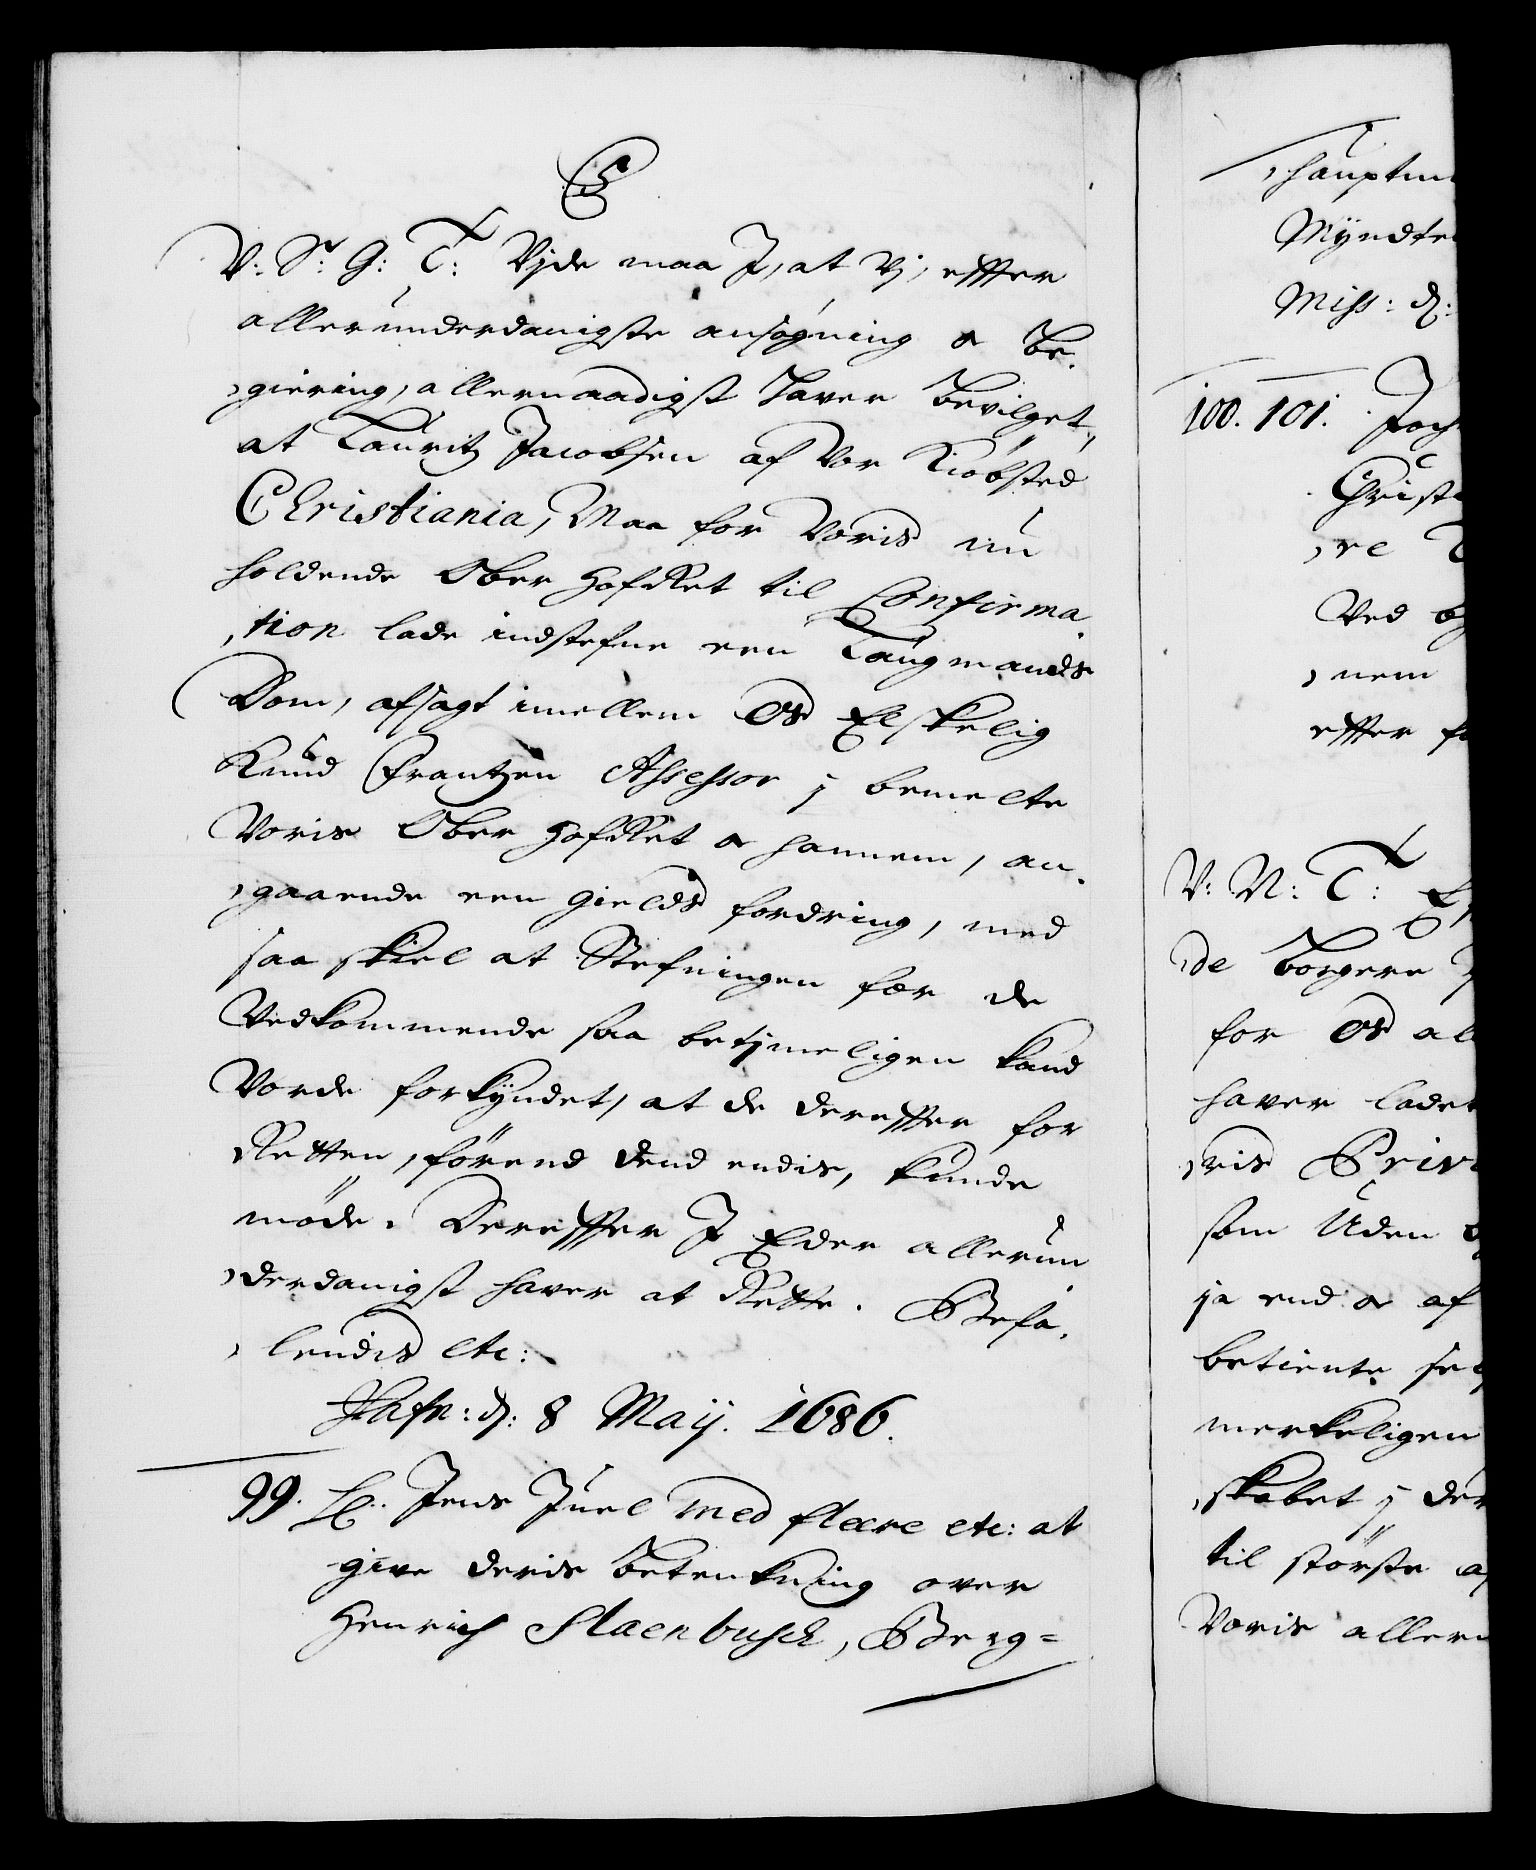 V: Sr: G: T: Vjde maa J, at Vj, effter
allerunderdanigste ansøgning o be-
giering, allernaadigst haver bevilget,
at Lauritz Jacobsen af Vor Kiøbsted
Christiania, Maa for Voris nu
holdende Ober Hof Ret til Confirma
,tion lade indstefne een Laugmands
Dom, afsagt imellem Os Elskelig
Knud Frantzen Assessor j bemelte
Voris Ober Hof Ret o hannem, an-
,gaaende een Gields fordring, med
saa skiel at Stefningen for de
Vedkommende saa betjmeligen kand
Vorde forkyndet, at de dereffter for
Retten, førend dend endis, kunde
møde. Dereffter J Eder allerun
,derdanigst haver at Rette. Befa-
,lendis etc:
Hafn: d: 8 Maij. 1686.
99. Jens Juel med fleere etc: at
give deris betenkning over
Henrich Slaenbusch, Berg=
,Hauptm
Myndte
Miss: d:
100. 101. Joch
Christ
,re
Ved
,nem
effter fo
V: N: T:
de borgere
for Os al
haver ladet
,ris Priv
som Uden
ja end o af
betiente
merkeligen
,skabet j der
til største
Voris allern